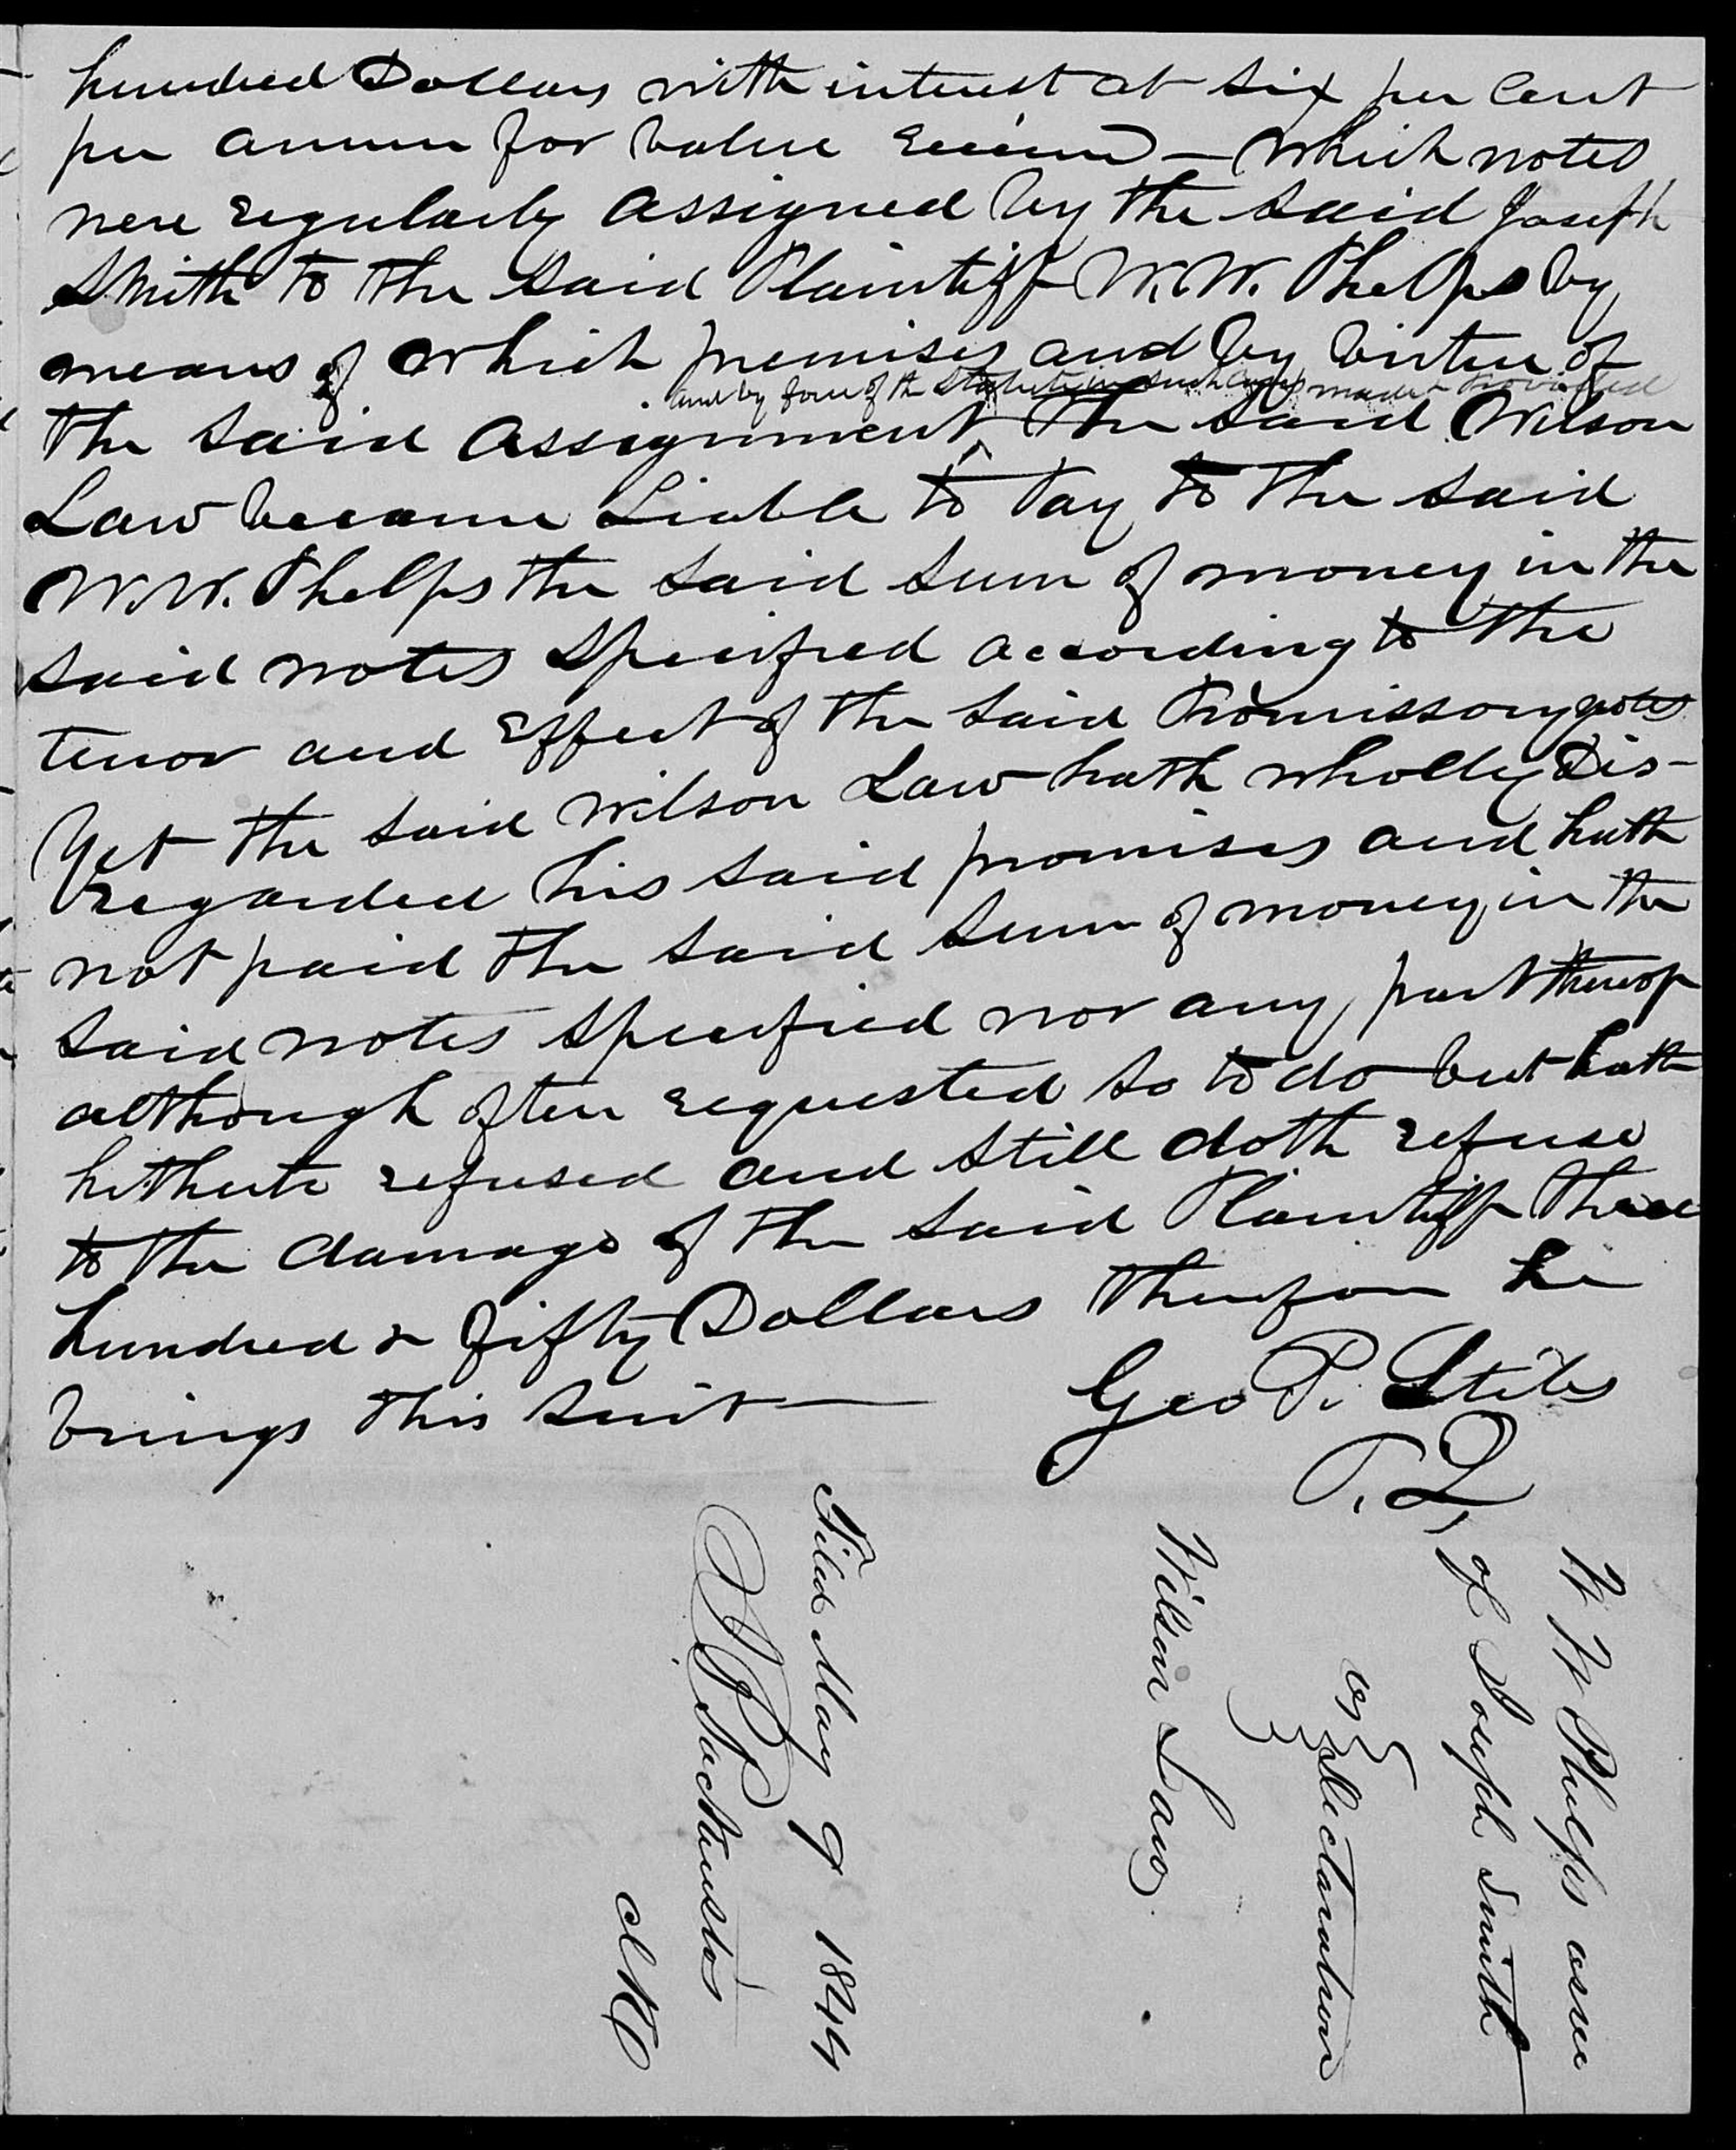 hundred Dollars with interest at six per cent
per annum for value received — which notes
were regularly assigned by the said Joseph
Smith to the said Plaintiff W. W. Phelps by
means of which premises and by virtue of
and by force of the Statute in such cases made & provided
the said assignment ^ the said Wilson
Law became Liable to Pay to the said
W. W. Phelps the said sum of money in the
said notes specified according to the
tenor and effect of the said Promissory notes
Yet the said Wilson Law hath wholly Dis-
regarded his said promises and hath
not paid the said sum of money in the
said notes specified nor any part thereof
although often requested so to do but hath
hitherto refused and still doth refuse
to the damage of the said Plaintiff three
hundred & fifty Dollars therefore he
brings this suit —
Geo P. Stiles
P. Q.
W W Phelps assee
of Joseph Smith
vs } Declaration
Wilson Law
Filed May 9 1844
J B Backenstos
Clk